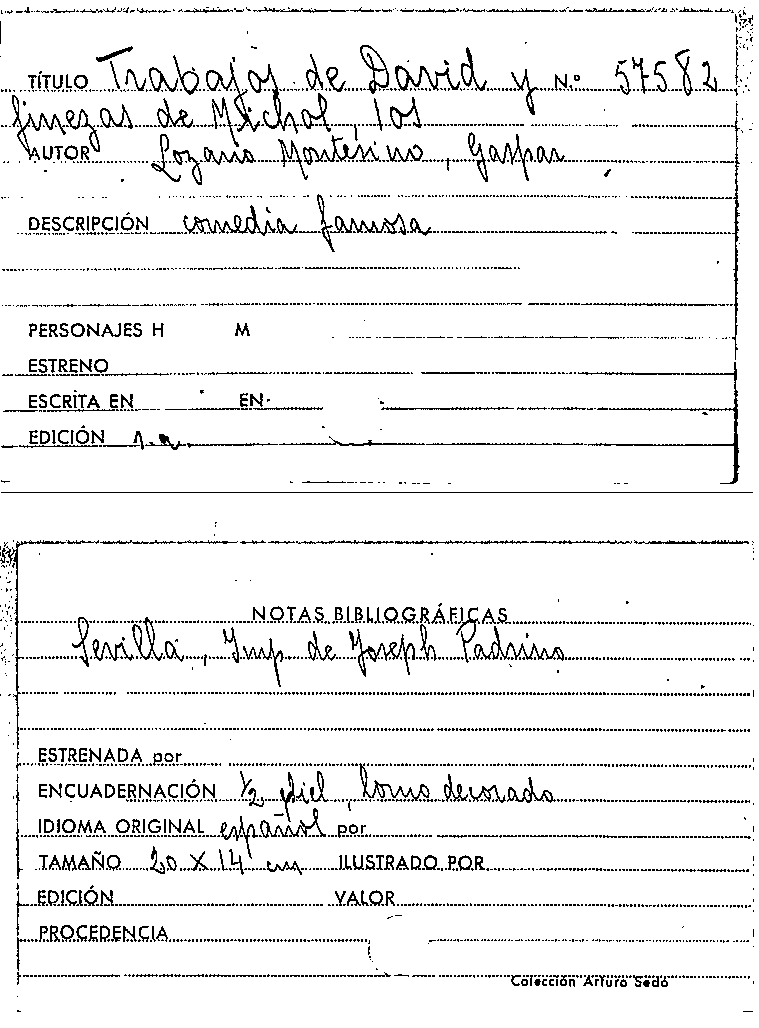 TÍTULO Trabajos de David y N.º 57582
finezas de Michol, los
AUTOR Lozano Montesino, Gaspar
DESCRIPCIÓN comedia famosa
PERSONAJES H M
ESTRENO
ESCRITA EN EN
EDICIÓN s.a.
NOTAS BIBLIOGRÁFICAS
Sevilla, Imp de Joseph Padrino
ESTRENADA por
ENCUADERNACIÓN ½ piel, lomo decorado
IDIOMA ORIGINAL español por
TAMAÑO 20 X 14 cm ILUSTRADO POR
EDICIÓN VALOR
PROCEDENCIA
Colección Arturo Sedó